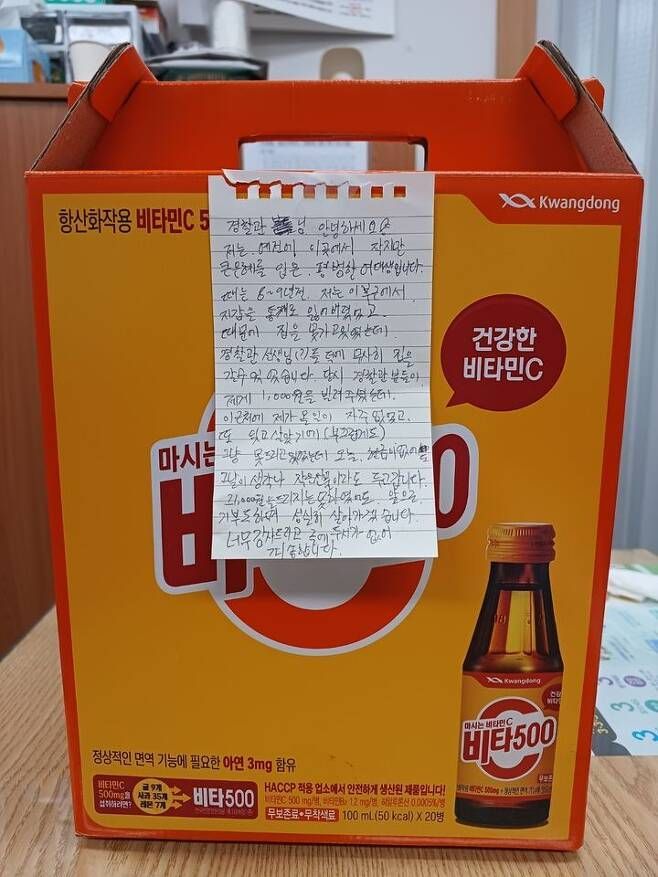 항산화작용 비타민C 5
Kwangdong
건강한
비타민C
경찰관 님 안녕하세요
저는 예전에 이곳에서 작지만
큰 은혜를 입은, 평범한 여대생입니다.
때는 8~9년전, 저는 이 부근에서
지갑을 통째로 잃어버렸었고
때문에 집을 못가고있었는데
경찰관 선생님(?)들 덕에 무사히 집을
갈 수 있었습니다. 당시 경찰관분들이
제게 1,000원을 빌려주셨는데.
이 근처에 제가 올 일이 자주 없었고,
또 잊고 살았기에 (부끄럽게도)
그냥 못드리고있었는데 오늘,
그날이 생각나 작은선물이라도 두고갑니다.
21,000원을 드리지는 못하였어도
기부도하며 성실히 살아가겠습니다.
너무 감사드리고 글에 두서가 없어
죄송합니다.
마시는
비 00
정상적인 면역 기능에 필요한 아연 3mg 함유
비타민C
500mg을
섭취하려면?
귤 9개
사과 35개
레몬 7개
비타500
HACCP 적용 업소에서 안전하게 생산된 제품입니다!
비타민C 500 mg/병, 비타민B₂ 1.2 mg/병,
무보존료•무착색료
100 mL(50 kcal) X 20병
Kwangdong
건강
비타
마시는 비타민C
비타500